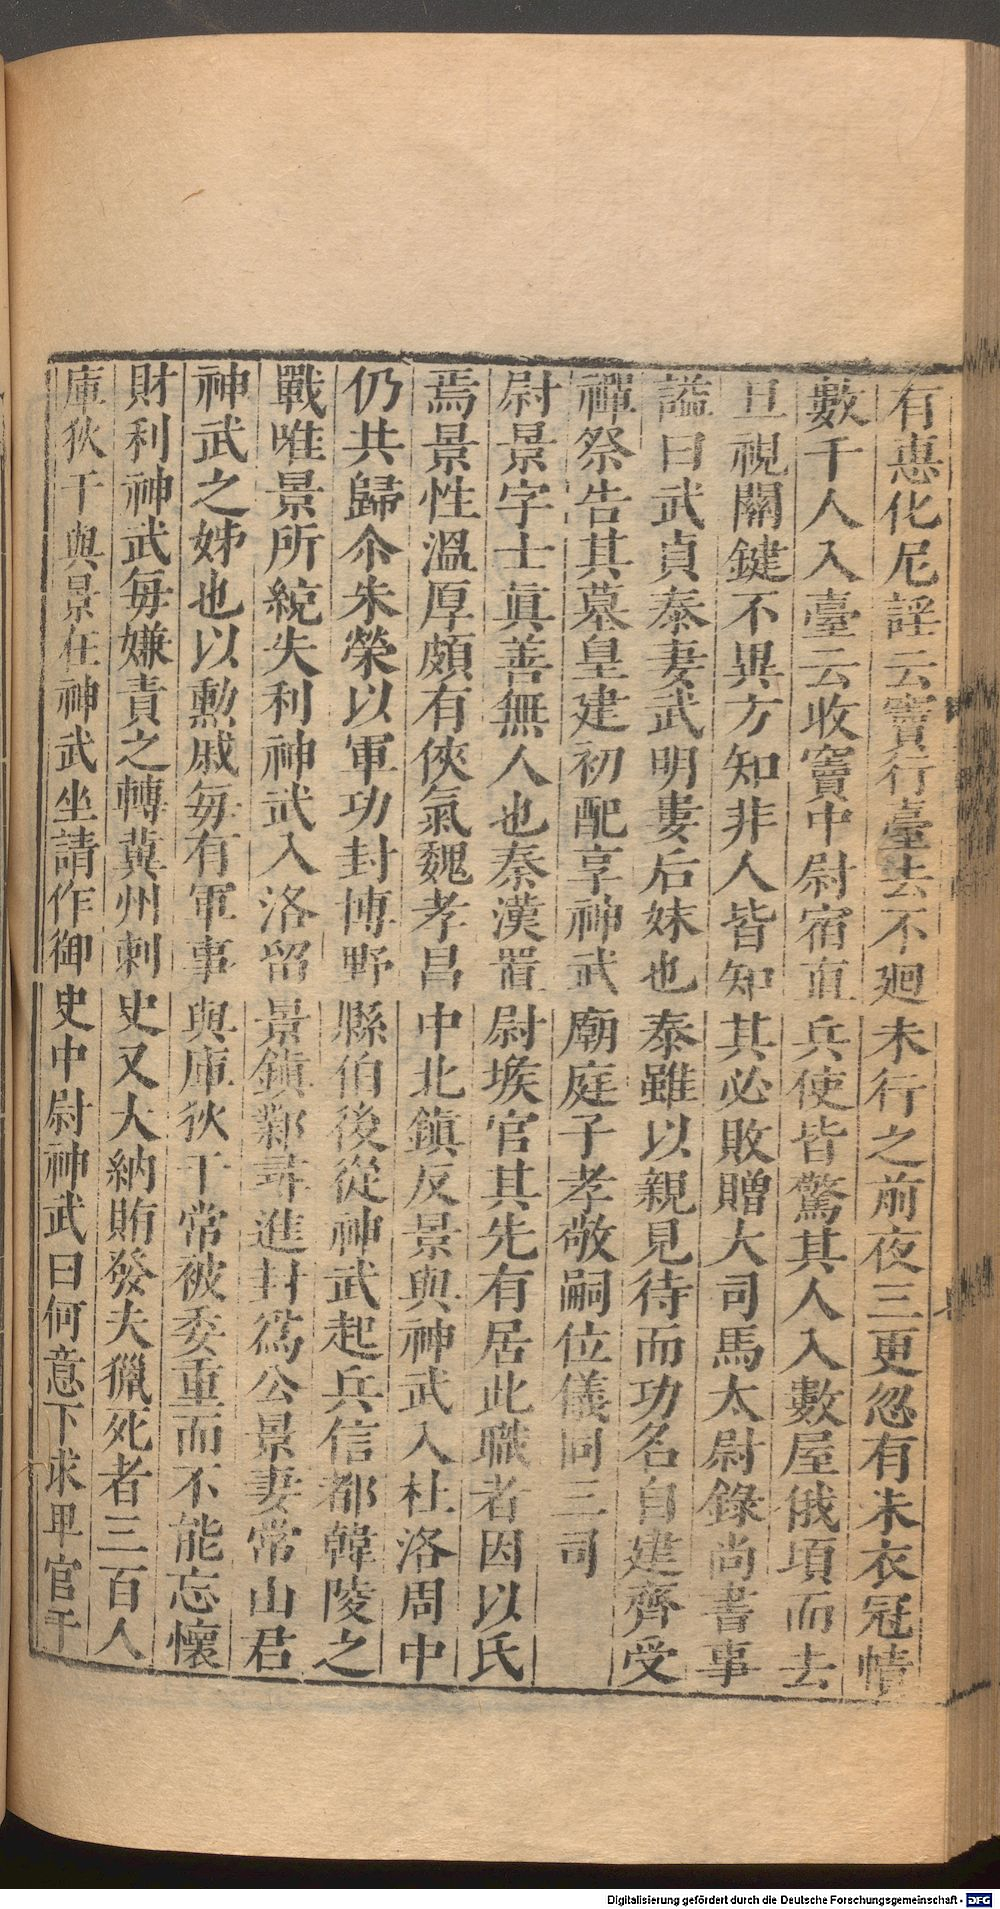 有惠化尼謡云竇行臺去不廻未行之前夜三更忽有朱衣冠幘
數千人入臺云收竇中尉宿直兵使皆驚其人入數屋俄頃而去
旦視關鍵不異方知非人皆知其必敗贈大司馬太尉錄尚書事
謚曰武貞泰妻武明婁后妹也泰雖以親見待而功名自建齊受
禪祭告其墓皇建初配享神武廟庭子孝敬嗣位儀同三司
尉景字士眞善無人也秦漢置尉堠官其先有居此職者因以氏
焉景性溫厚頗有俠氣魏孝昌中北鎮反景與神武入杜洛周中
仍共歸尒朱榮以軍功封博野縣伯後從神武起兵信都韓陵之
戰唯景所統失利神武入洛留景鎮鄴尋進封爲公景妻常山君
神武之姊也以勲戚毎有軍事與庫狄干常被委重而不能忘懷
財利神武毎嫌責之轉冀州刺史又大納賄發夫獵死者三百人
庫狄干與景在神武坐請作御史中尉神武曰何意下求卑官干
Digitalisierung gefördert durch die Deutsche Forschungsgemeinschaft - DFG